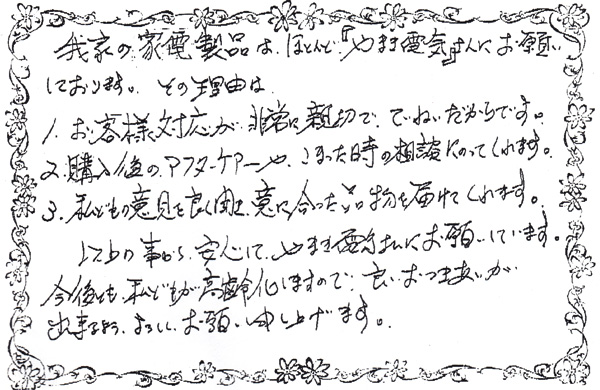 我家の家電製品は、ほとんど『やまま電気』さんにお願い
しております。その理由は
1. お客様対応が、非常に親切で、ていねいだからです。
2. 購入後の、アフターケアーや、こまった時の相談にのってくれます。
3. 私どもの意見を良く聞き、意に合った品物を届けてくれます。
以上の事から、安心して、やまま電気さんにお願いしています。
今後とも、私どもが高齢化しますので、良いおつきあいが
出来るよう、よろしくお願い申し上げます。